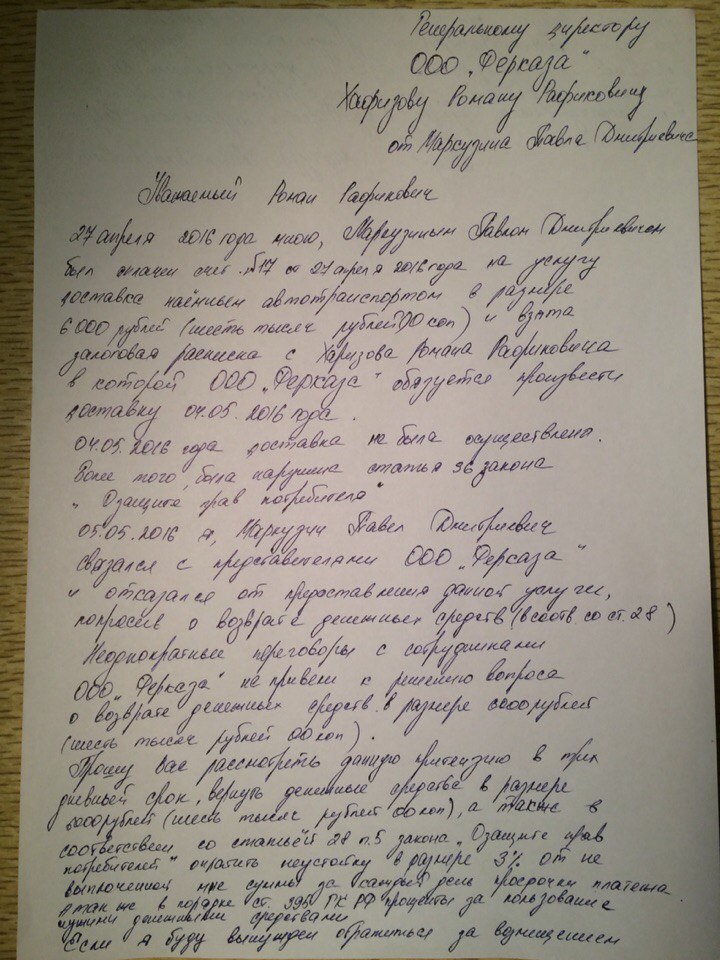 Генеральному директору
ООО „Ферказа"
Хафизову Роману Рафиковичу
от Маркузина Павла Дмитриевича
Уважаемый Роман Рафикович
27 апреля 2016 года мною, Маркузиным Павлом Дмитриевичем
был оплачен счет №17 от 27 апреля 2016 года на услугу
доставка наёмным автотранспортом в размере
6 000 рублей (шесть тысяч рублей 00 коп) и взята
залоговая расписка с Хафизова Романа Рафиковича
в которой ООО „Ферказа" обязуется произвести
доставку 04.05.2016 года.
04.05.2016 года доставка не была осуществлена.
Более того, была нарушена статья 36 закона
„О защите прав потребителя"
05.05.2016 я, Маркузин Павел Дмитриевич
связался с представителями ООО „Ферказа"
и отказался от предоставления данной услуги,
попросив о возврате денежных средств (в соотв. со ст. 28)
Неоднократные переговоры с сотрудниками
ООО „Ферказа" не привели к решению вопроса
о возврате денежных средств в размере 6000 рублей
(шесть тысяч рублей 00 коп).
Прошу Вас рассмотреть данную притензию в трех
дневный срок, вернуть денежные средства в размере
6000 рублей (шесть тысяч рублей 00 коп), а также в
соответствии со статьёй 28 п.5 закона „О защите прав
потребителей" оплатить неустойку в размере 3% от не
выплоченной мне суммы за каждый день просрочки платежа
А так же в порядке ст. 395 ГК РФ проценты за пользование
чужими денежными средствами
Если я буду вынужден обратиться за возмещением